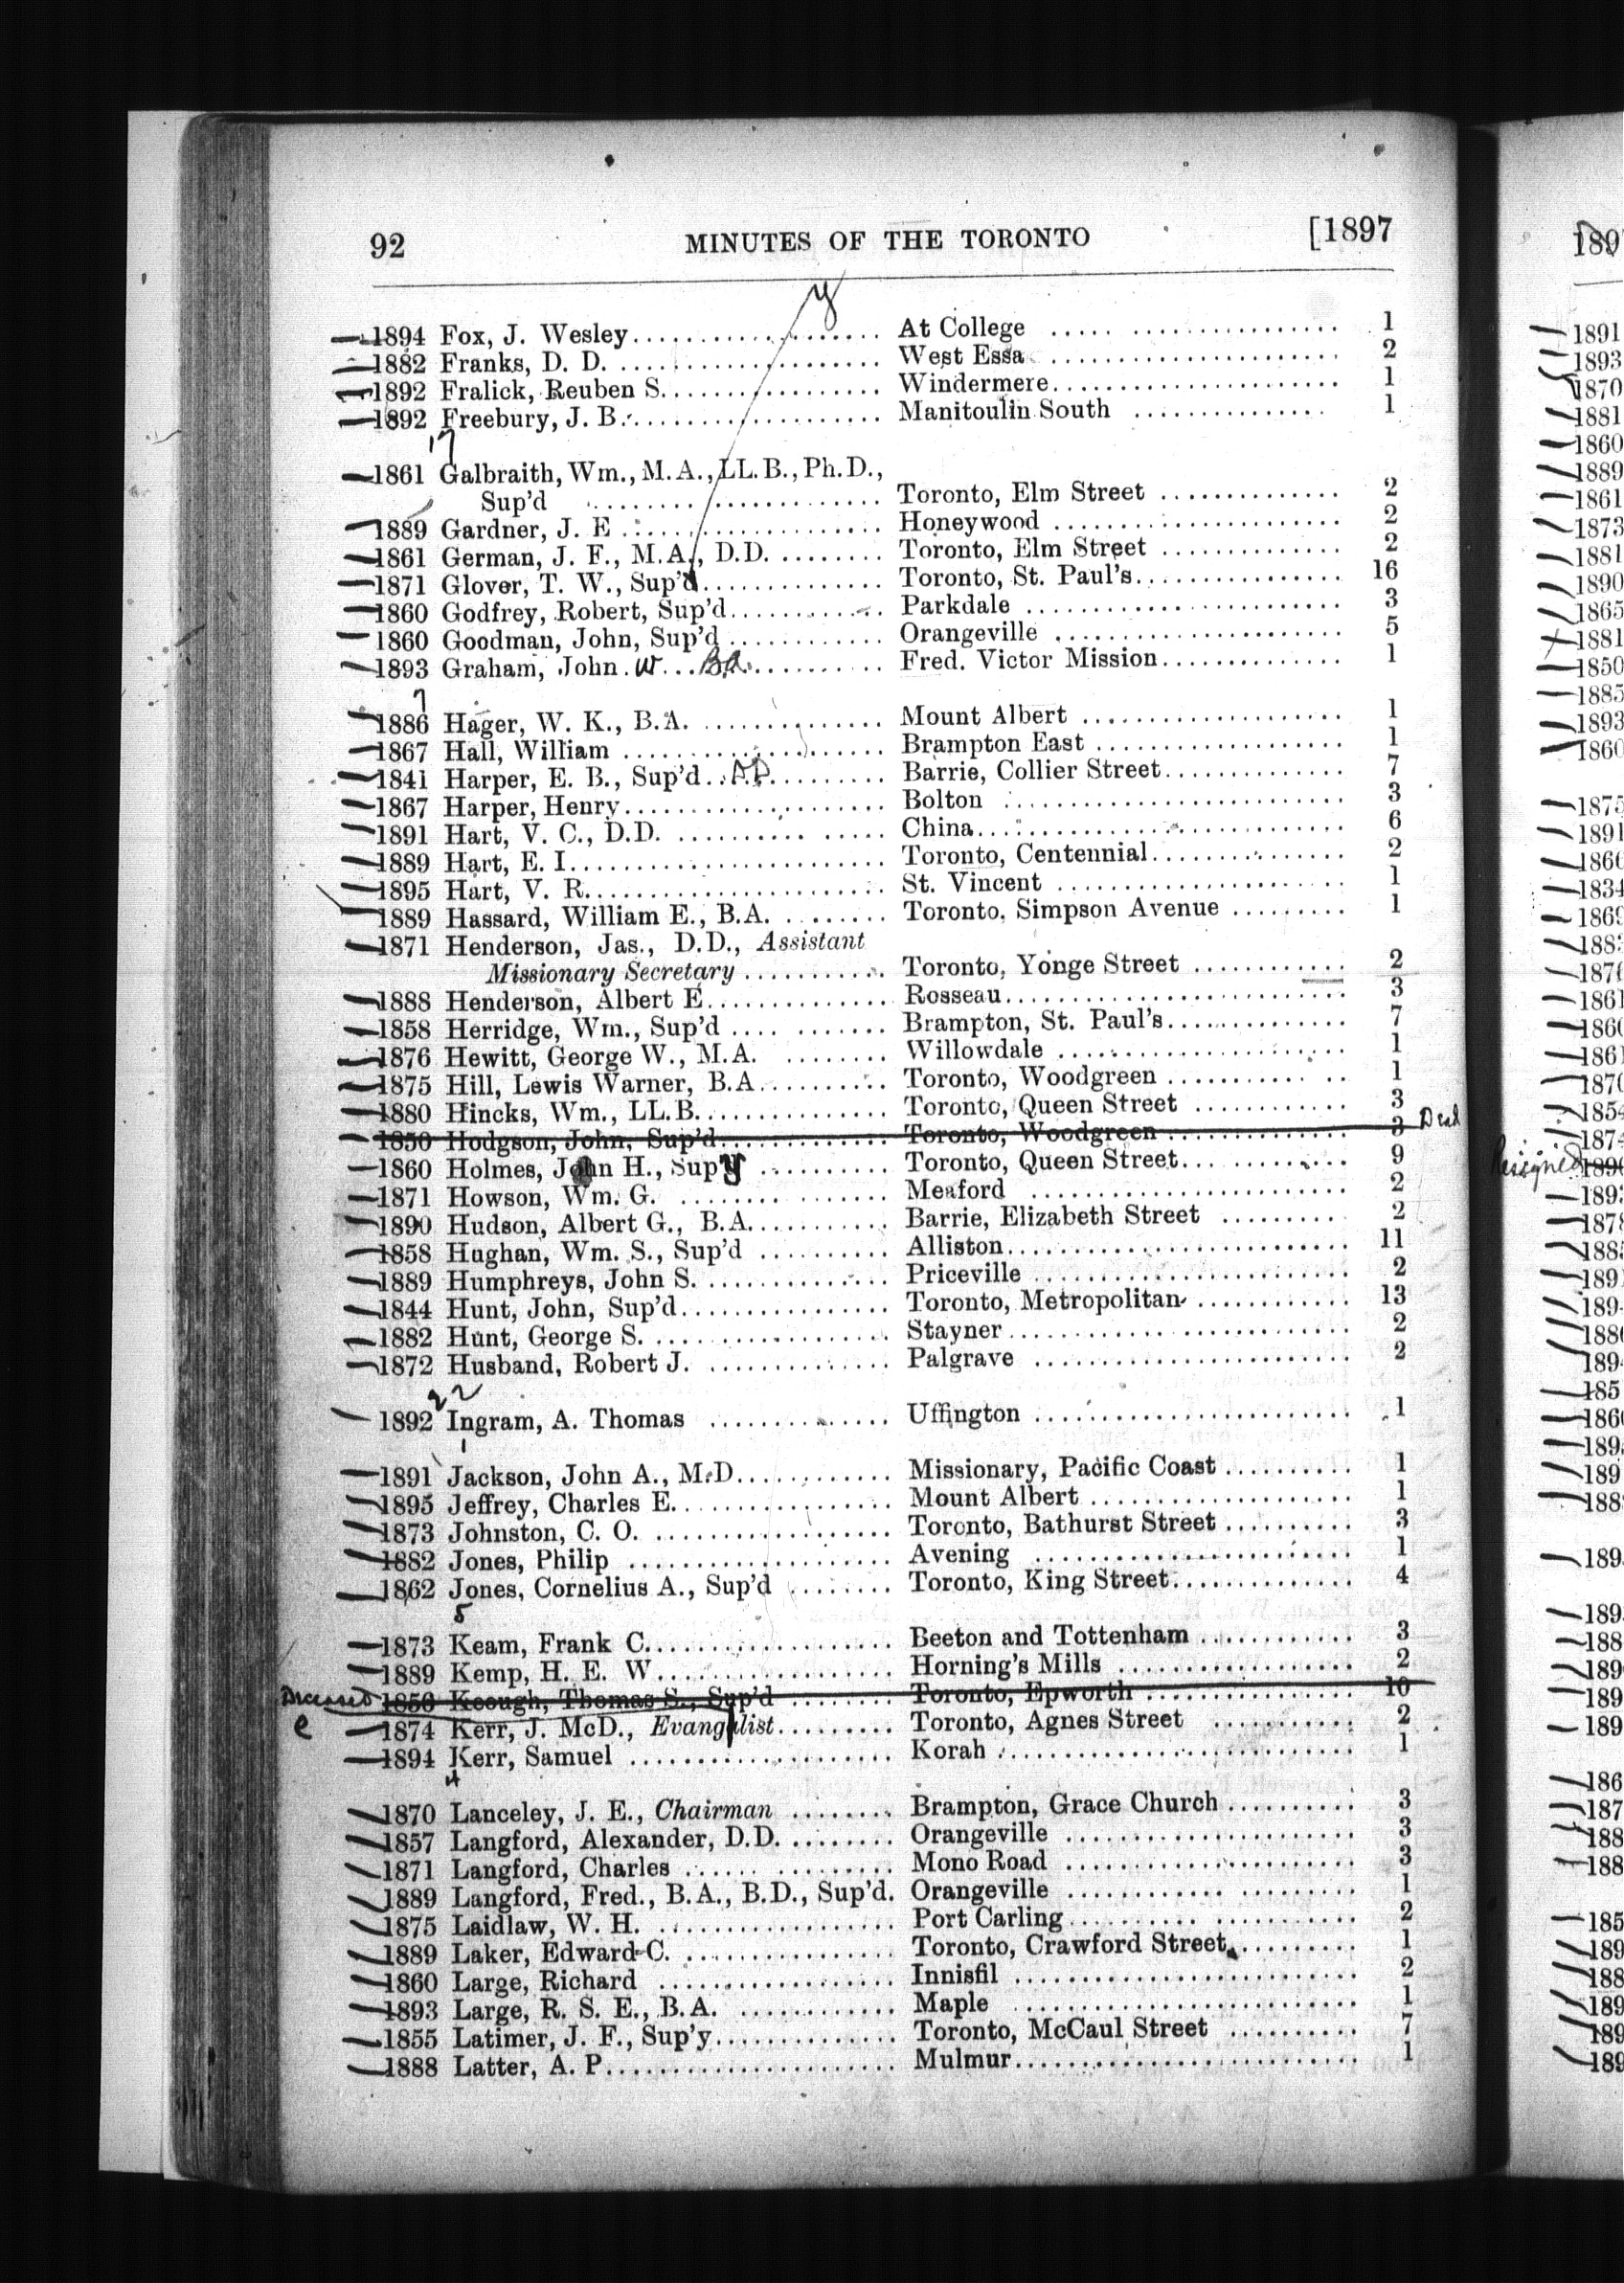 92 MINUTES OF THE TORONTO [1897
y
1894 Fox, J. Wesley At College 1
1882 Franks, D. D. West Essa 2
1892 Fralick, Reuben S. Windermere 1
1892 Freebury, J. B. Manitoulin South 1
17
1861 Galbraith, Wm., M.A., LL.B., Ph.D.,
Sup'd Toronto, Elm Street 2
1889 Gardner, J. E Honeywood 2
1861 German, J. F., M.A., D.D. Toronto, Elm Street 2
1871 Glover, T. W., Sup'd Toronto, St. Paul's 16
1860 Godfrey, Robert, Sup'd Parkdale 3
1860 Goodman, John, Sup'd Orangeville 5
1893 Graham, John W B.A. Fred. Victor Mission 1
7
1886 Hager, W. K., B.A. Mount Albert 1
1867 Hall, William Brampton East 1
1841 Harper, E. B., Sup'd D.D. Barrie, Collier Street 7
1867 Harper, Henry Bolton 3
1891 Hart, V. C., D.D. China 6
1889 Hart, E. I. Toronto, Centennial 2
1895 Hart, V. R. St. Vincent 1
1889 Hassard, William E., B.A. Toronto, Simpson Avenue 1
1871 Henderson, Jas., D.D., Assistant
Missionary Secretary Toronto, Yonge Street 2
1888 Henderson, Albert E. Rosseau 3
1858 Herridge, Wm., Sup'd Brampton, St. Paul's 7
1876 Hewitt, George W., M.A. Willowdale 1
1875 Hill, Lewis Warner, B.A. Toronto, Woodgreen 1
1880 Hincks, Wm., LL.B. Toronto, Queen Street 3
1850 Hodgson, John, Sup'd Toronto, Woodgreen 3 Dead
1860 Holmes, John H., Sup'y Toronto, Queen Street 9
1871 Howson, Wm. G. Meaford 2
1890 Hudson, Albert G., B.A. Barrie, Elizabeth Street 2
1858 Hughan, Wm. S., Sup'd Alliston 11
1889 Humphreys, John S. Priceville 2
1844 Hunt, John, Sup'd Toronto, Metropolitan 13
1882 Hunt, George S. Stayner 2
1872 Husband, Robert J. Palgrave 2
22
1892 Ingram, A. Thomas Uffington 1
1
1891 Jackson, John A., M.D. Missionary, Pacific Coast 1
1895 Jeffrey, Charles E. Mount Albert 1
1873 Johnston, C. O. Toronto, Bathurst Street 3
1882 Jones, Philip Avening 1
1862 Jones, Cornelius A., Sup'd Toronto, King Street 4
5
1873 Keam, Frank C. Beeton and Tottenham 3
1889 Kemp, H. E. W. Horning's Mills 2
Deceased 1850 Keough, Thomas S., Sup'd Toronto, Epworth 10
e 1874 Kerr, J. McD., Evangelist Toronto, Agnes Street 2
1894 Kerr, Samuel Korah 1
4
1870 Lanceley, J. E., Chairman Brampton, Grace Church 3
1857 Langford, Alexander, D.D. Orangeville 3
1871 Langford, Charles Mono Road 3
1889 Langford, Fred., B.A., B.D., Sup'd. Orangeville 1
1875 Laidlaw, W. H. Port Carling 2
1889 Laker, Edward C. Toronto, Crawford Street 1
1860 Large, Richard Innisfil 2
1893 Large, R. S. E., B.A. Maple 1
1855 Latimer, J. F., Sup'y Toronto, McCaul Street 7
1888 Latter, A. P. Mulmur 1